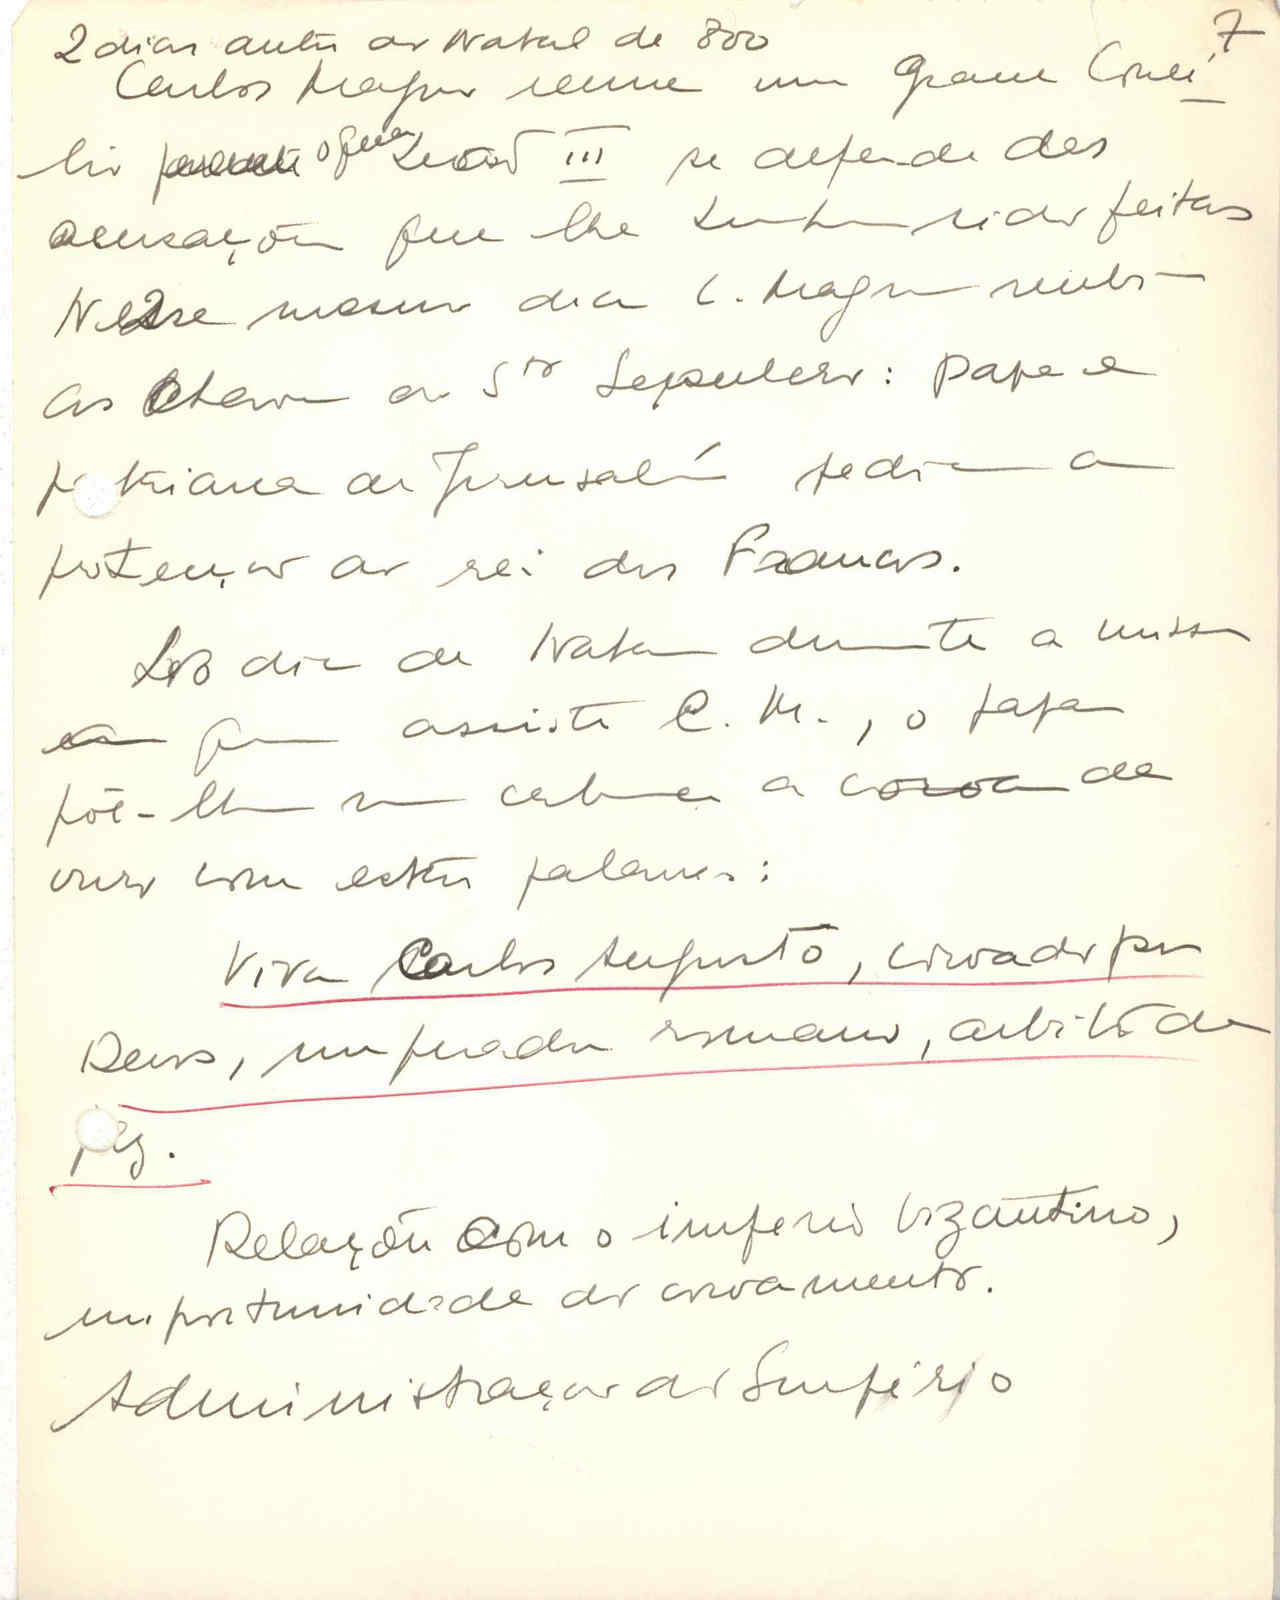 7
2 dias antes do Natal de 800
Carlos Magno reune um grande Concí
lio perante o qual Leão III se defende das
acusações que lhe tinham sido feitas
Nesse mesmo dia C. Magno recebe
as chaves do Sto Sepulcro: papa e
patriarca de Jerusalém pediam a
proteção ao rei dos Francos.
No dia de Natal durante a missa
a que assiste C. M., o papa
põe-lhe na cabeça a coroa de
ouro com estas palavras:
Viva Carlos Augusto, coroado por
Deus, imperador romano, arbitro da
paz.
Relações com o imperio bizantino,
importunidade do coroamento.
Administração do Império